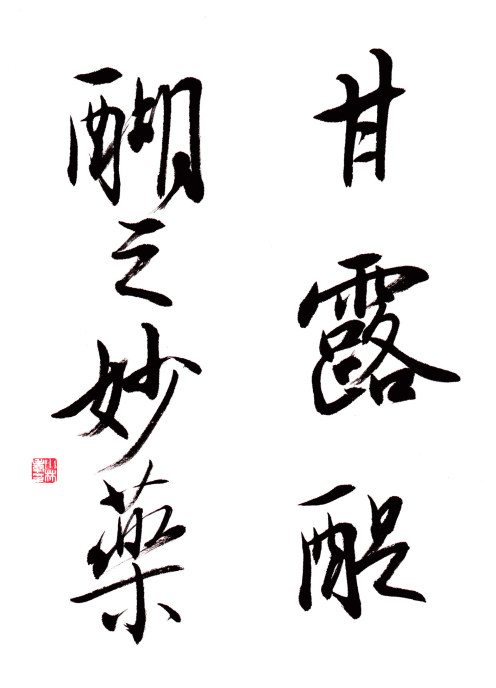 甘露醍
醐之妙薬